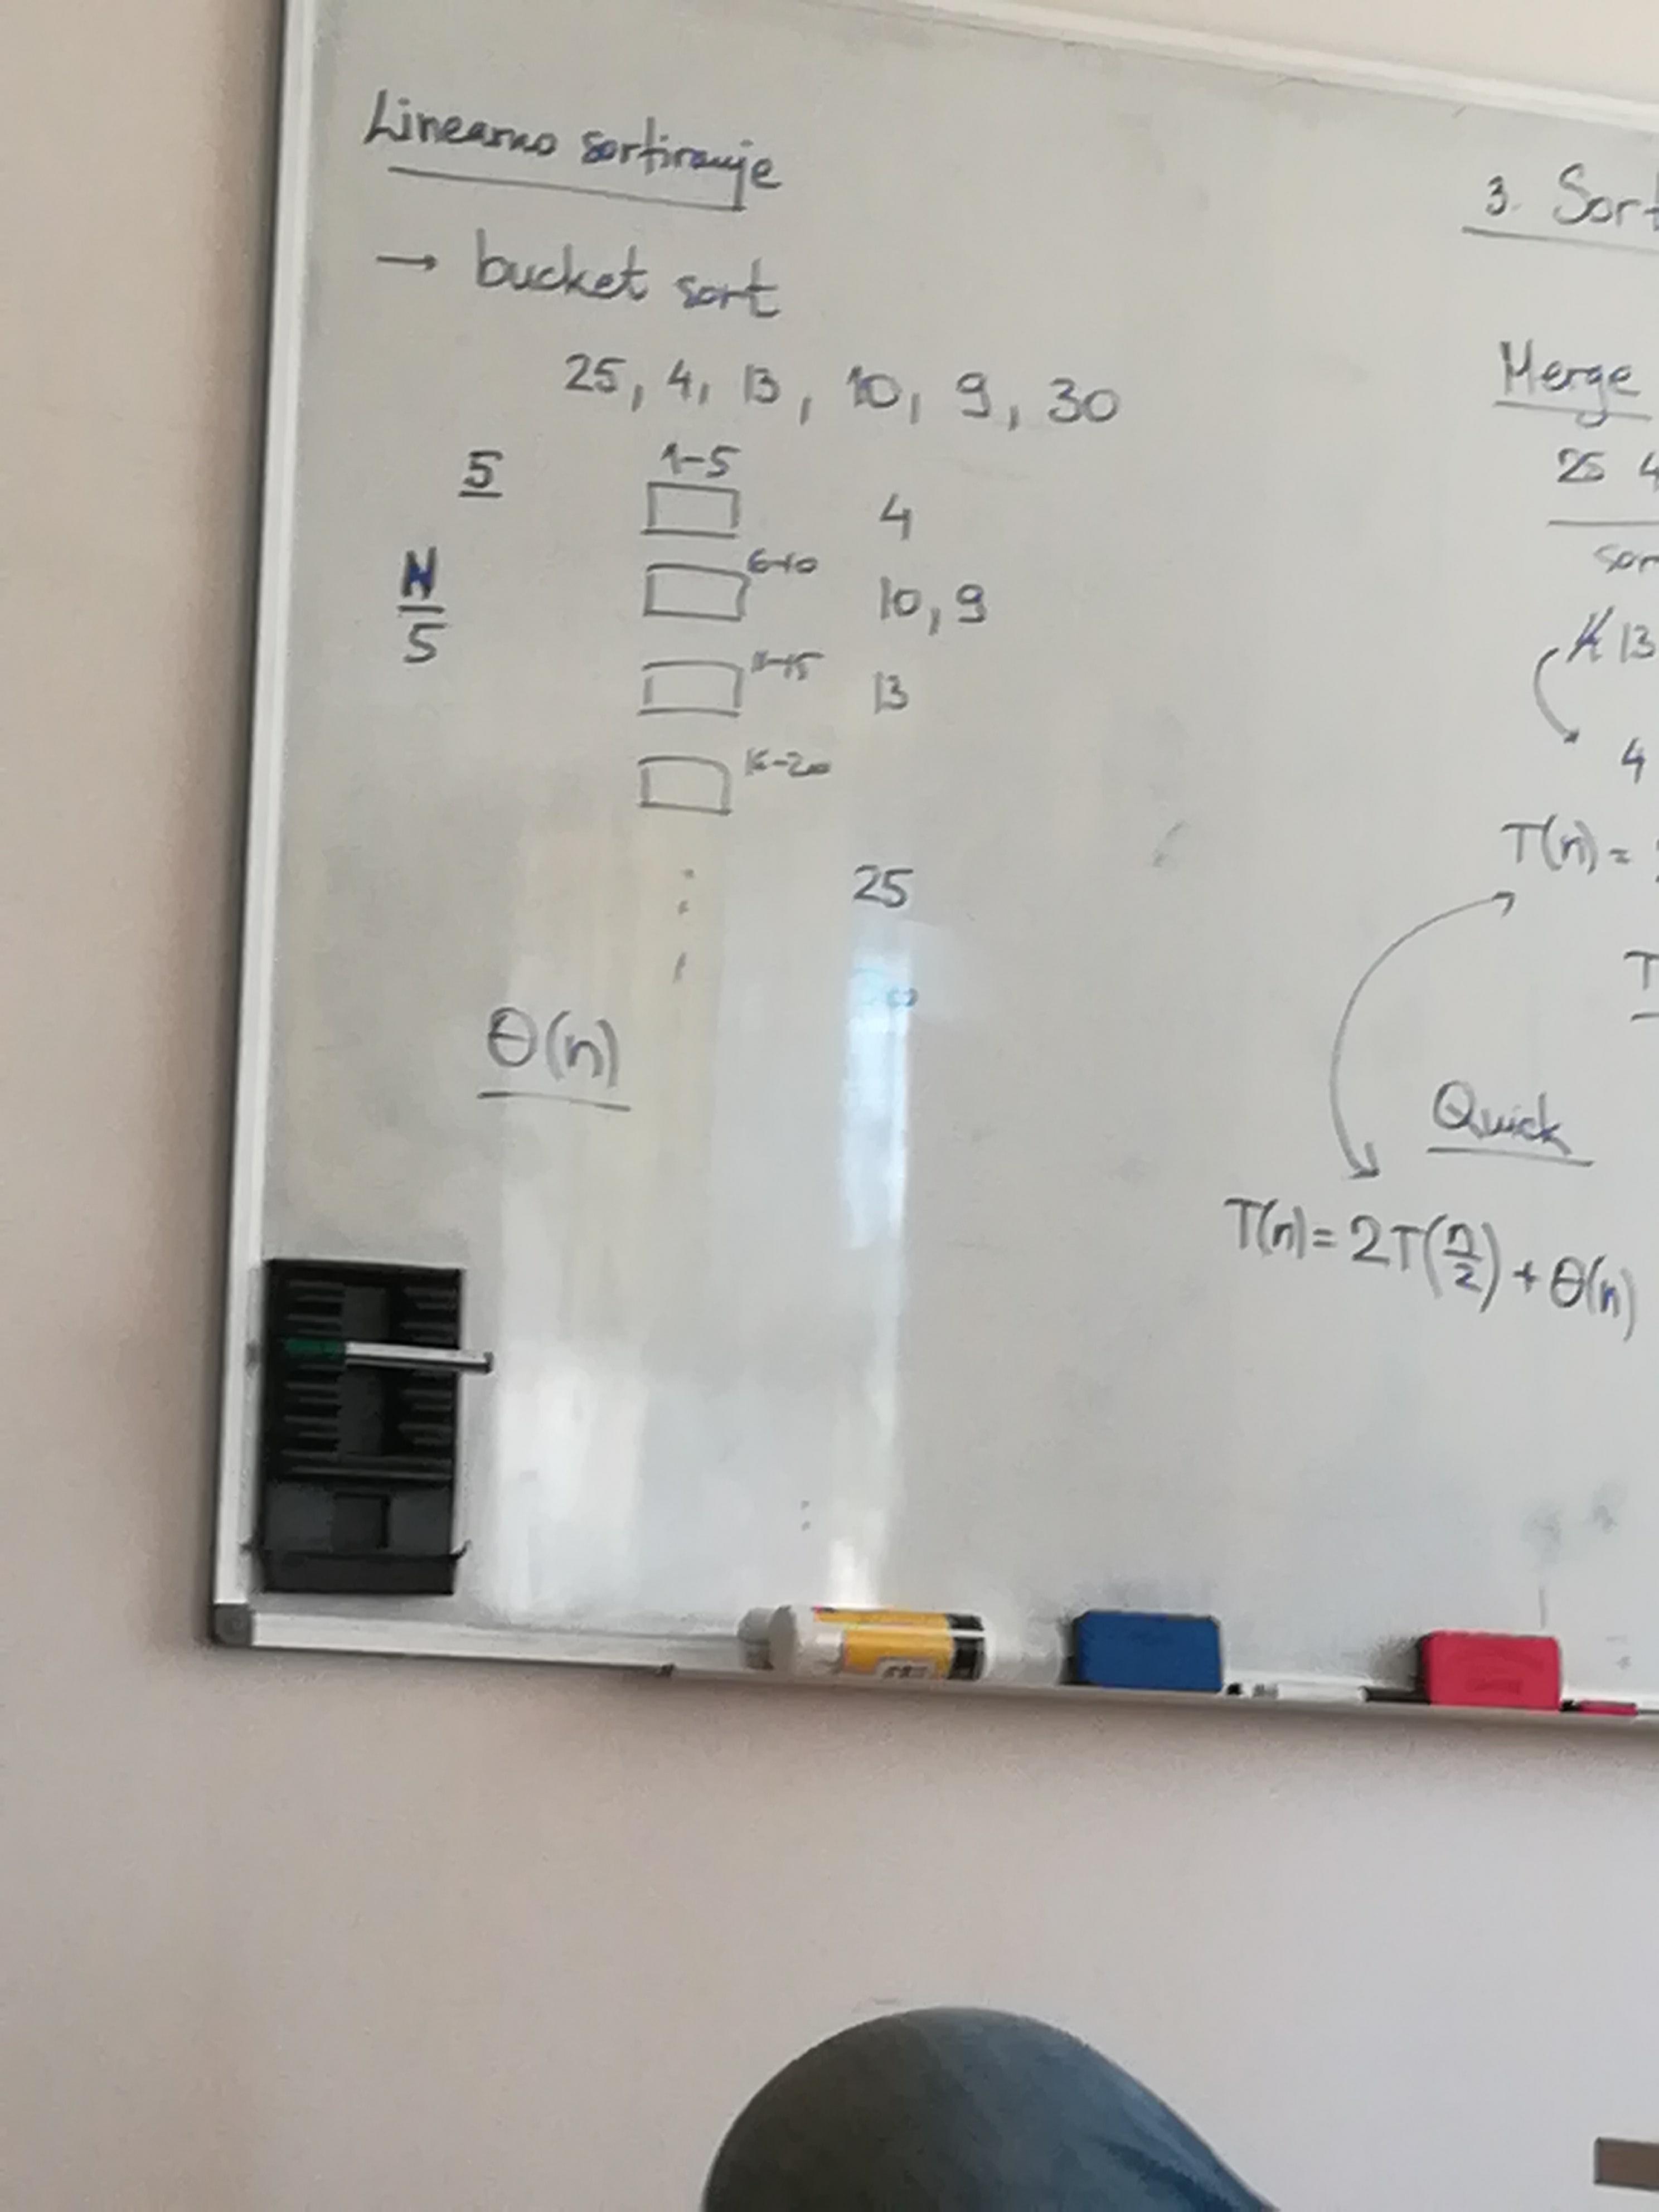 Linearno sortiranje
→ bucket sort
25, 4, 13, 10, 9, 30
5
N/5
1-5
4
6-10
10, 9
11-15
13
16-20
25
Θ(n)
3. Sort
Merge
25 4
13
4
T(n) =
T
Quick
T(n) = 2T(n/2) + Θ(n)